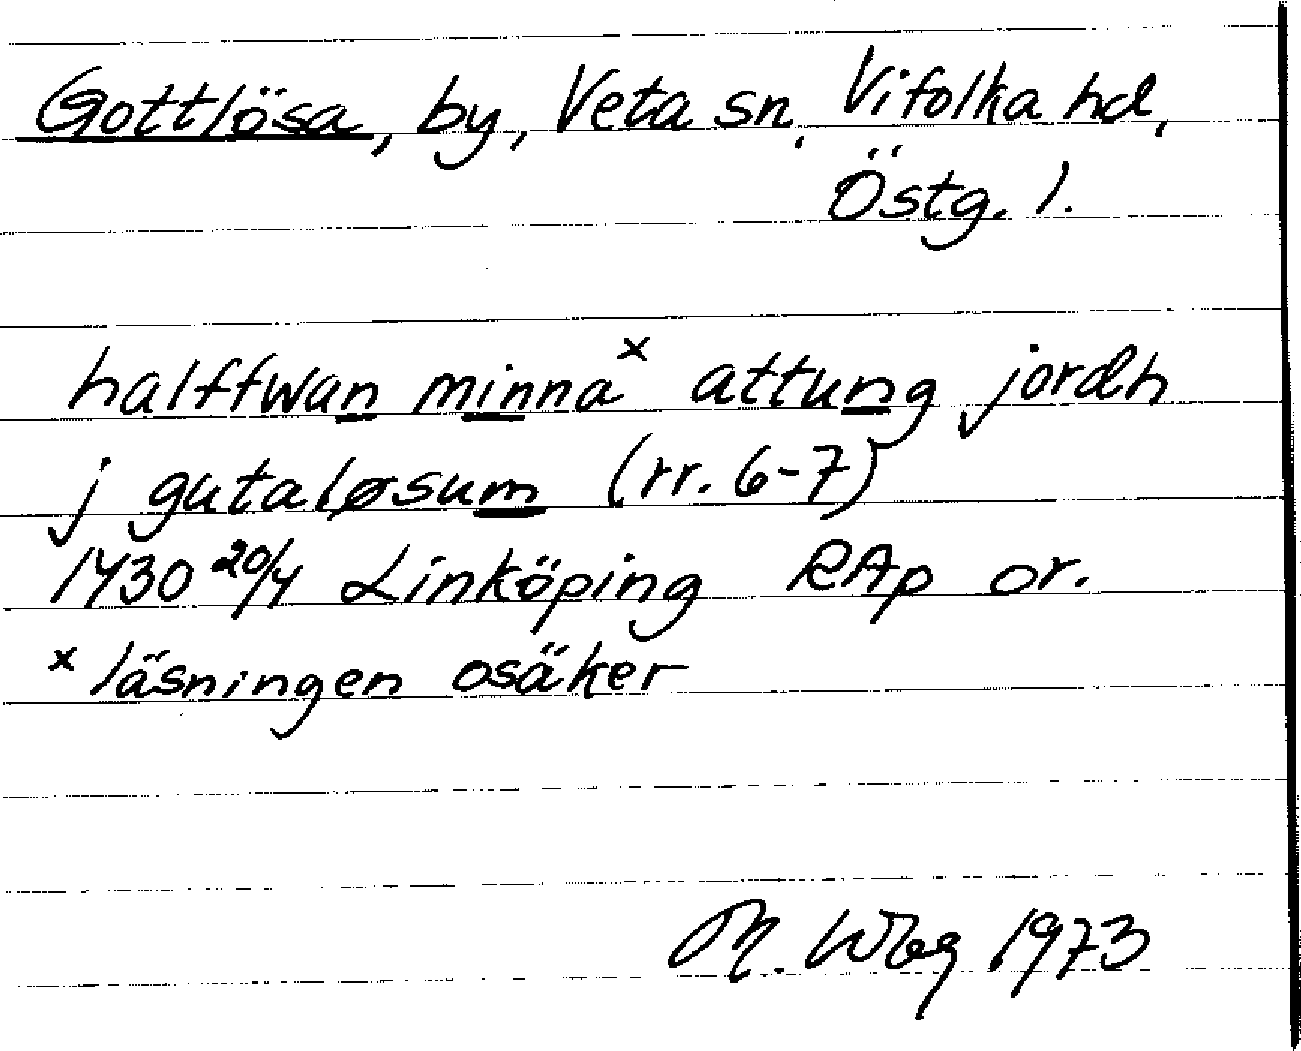 Gottlösa, by, Veta sn, Vifolka hd,
Östg. l.
halffwan minna x attung jordh
j gutaløsum (rr. 6-7)
1430 20/4 Linköping RAp or.
x läsningen osäker
M. Wbg 1973